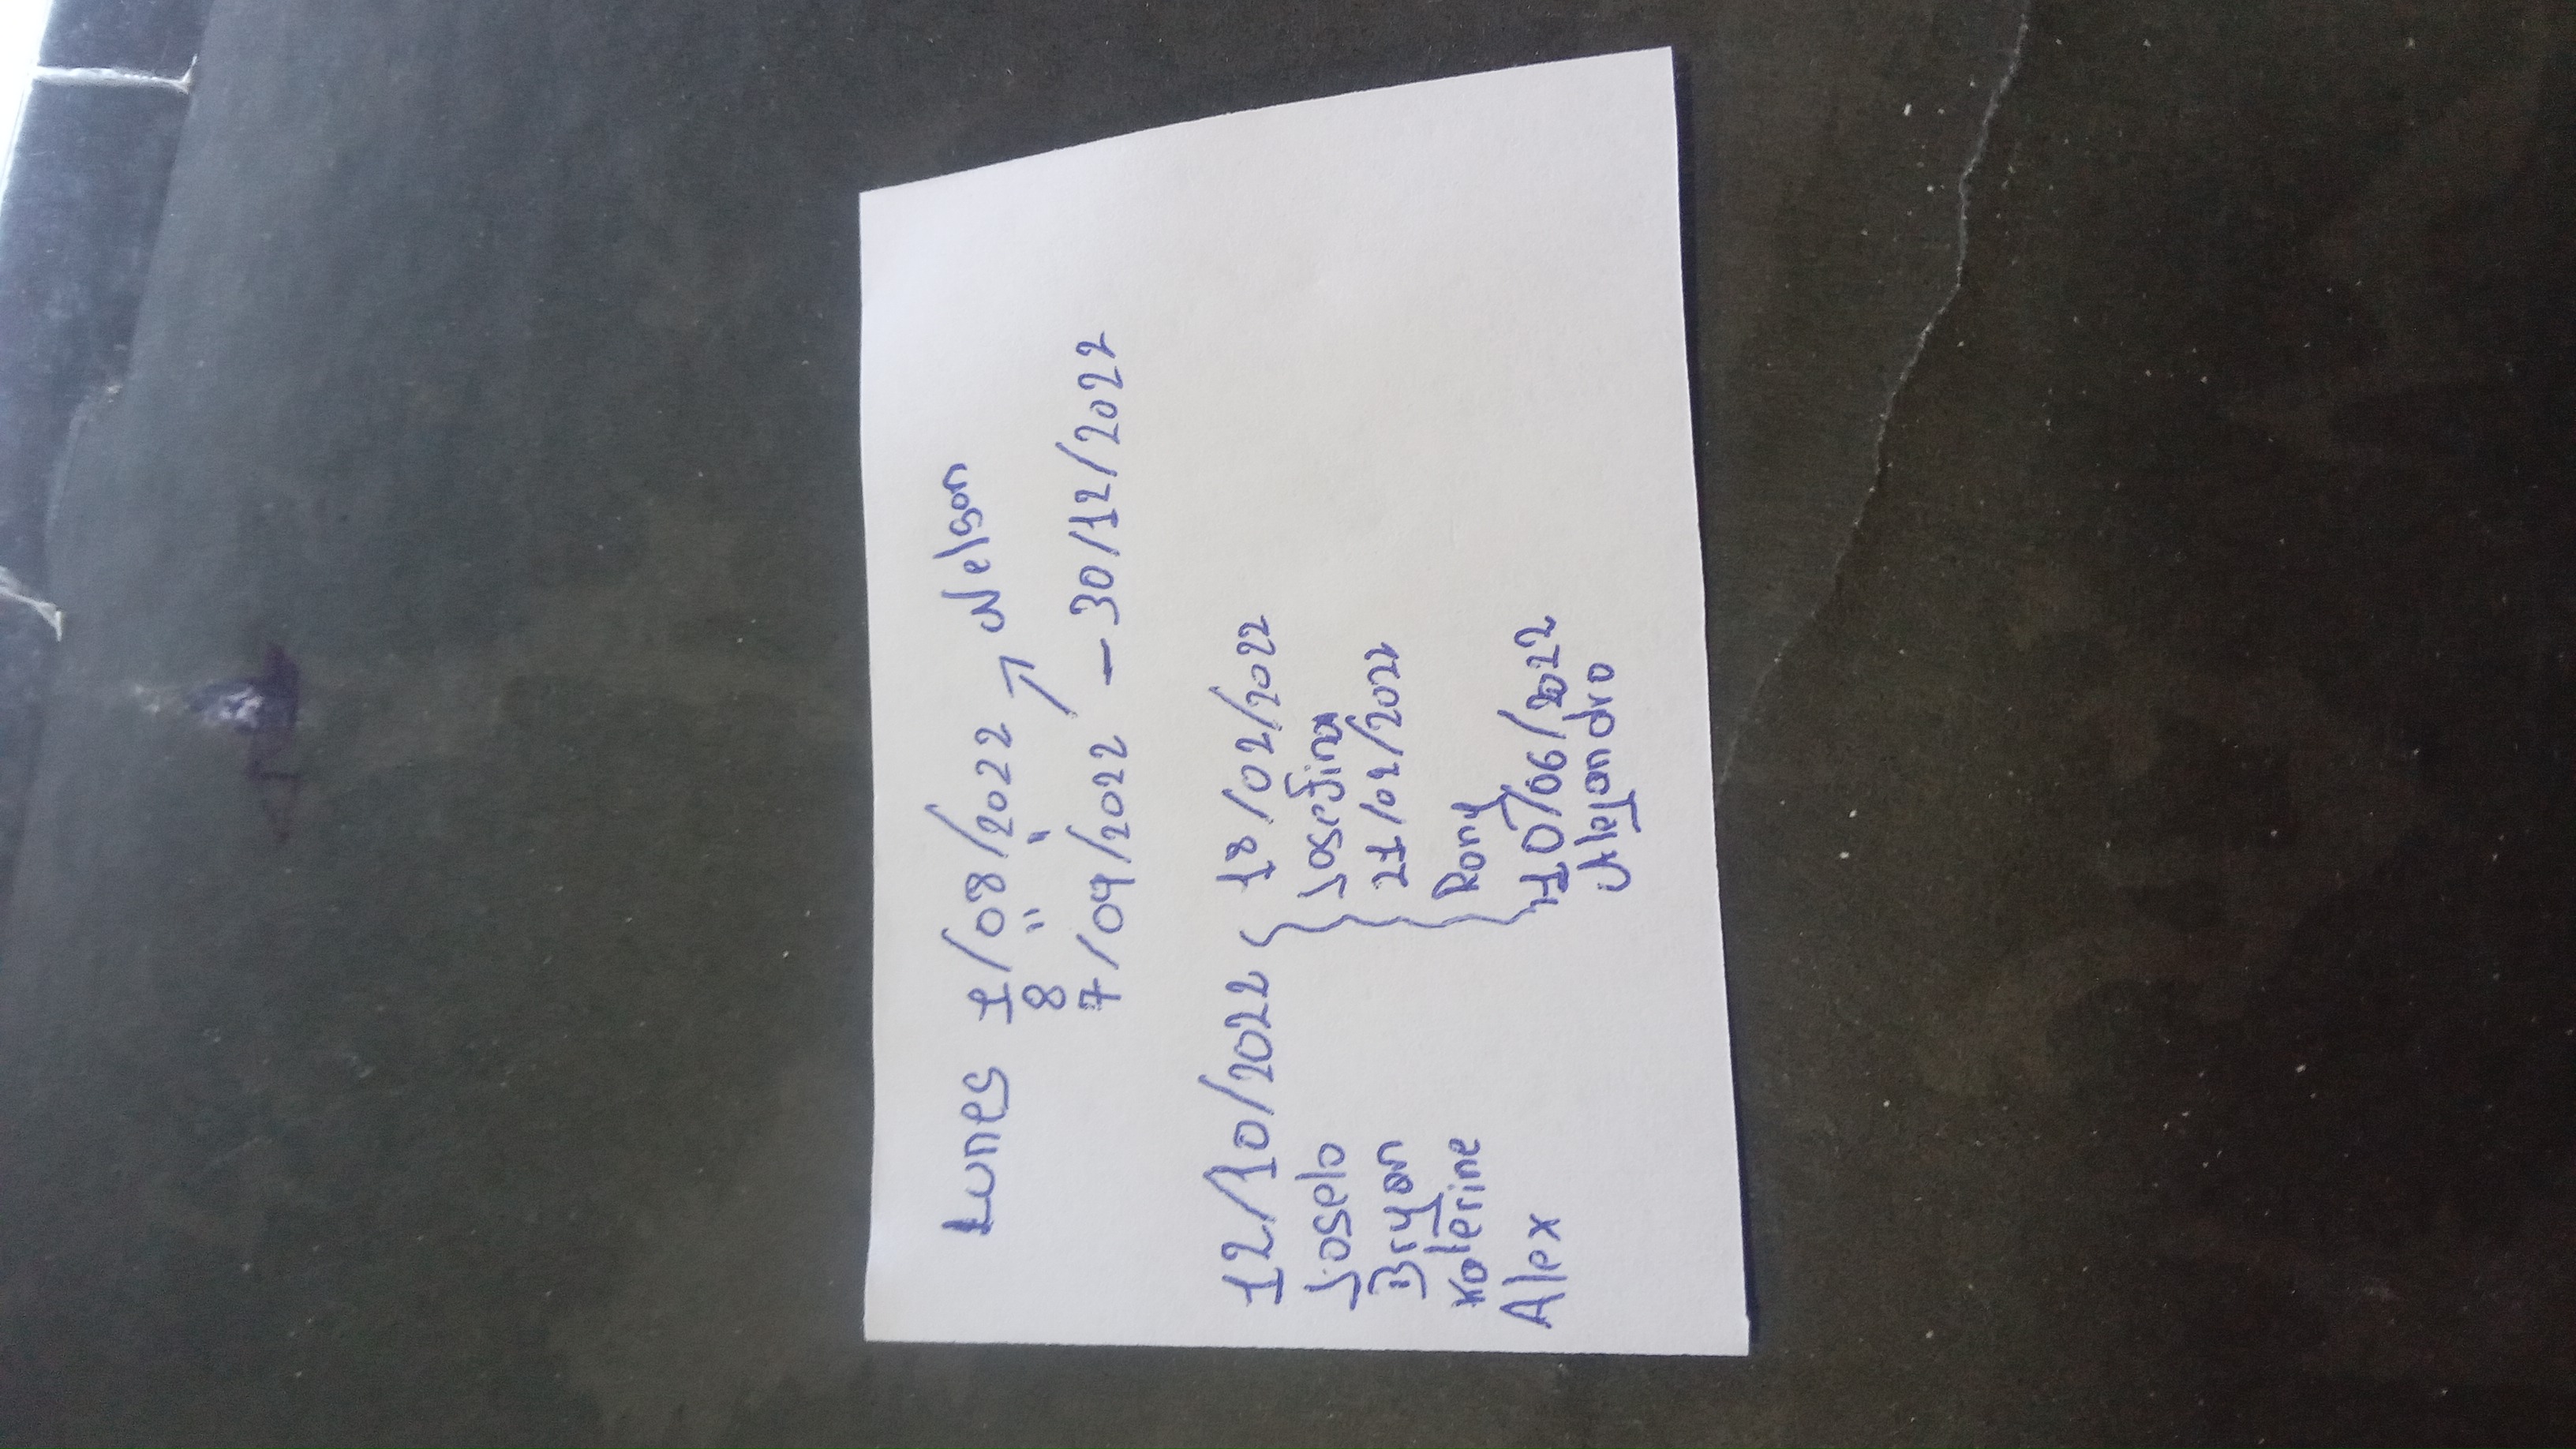 Lunes 1/08/2022 Nelson
8 " "
7/09/2022 - 30/12/2022
12/10/2022 18/02/2022
Joselo
Bryan 21/02/2022
Katerine Rony
Alex 10/06/2022
Alejandro